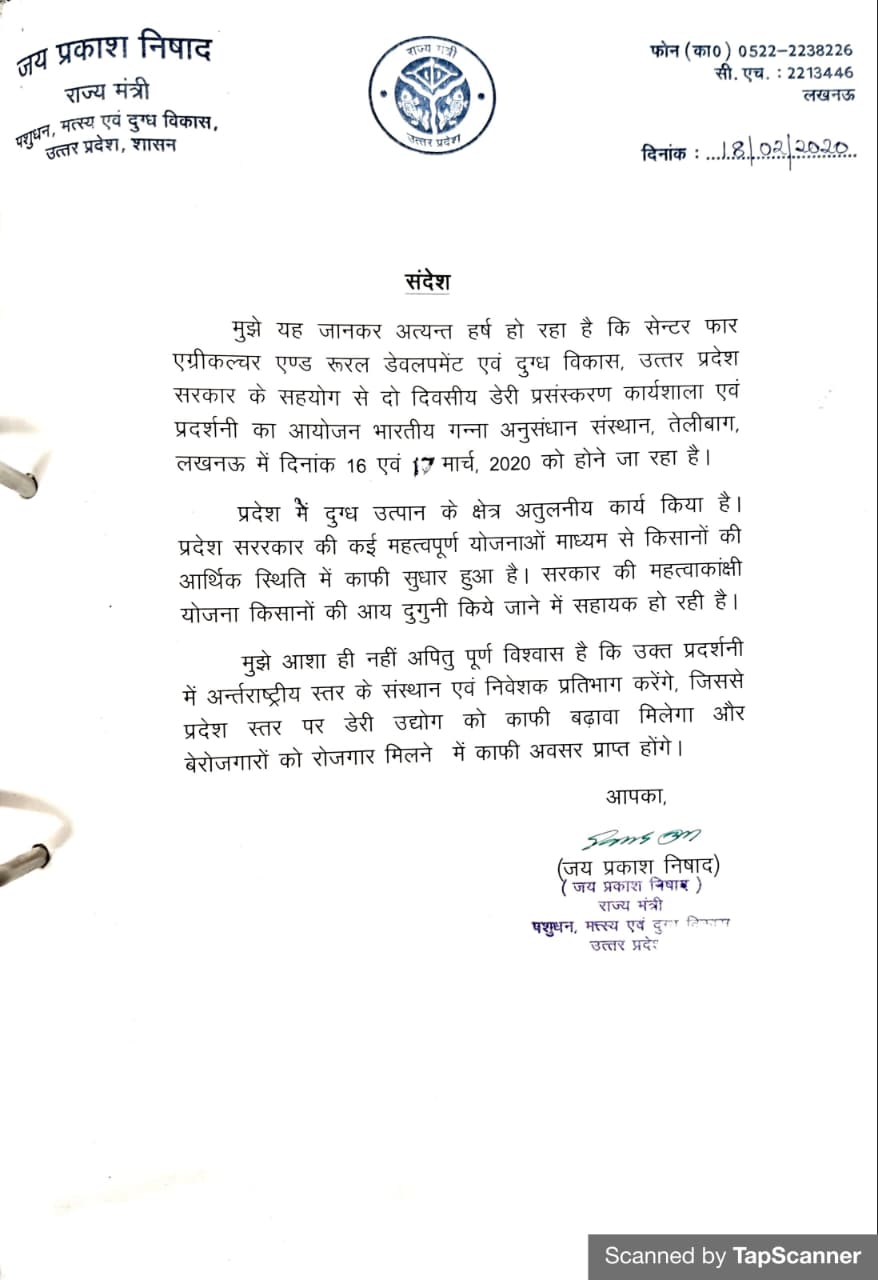 जय प्रकाश निषाद
राज्य मंत्री
पशुधन, मत्स्य एवं दुग्ध विकास,
उत्तर प्रदेश, शासन
राज्य मंत्री
उत्तर प्रदेश
फोन (का0) 0522-2238226
सी. एच. : 2213446
लखनऊ
दिनांक : ...18/02/2020...
संदेश
मुझे यह जानकर अत्यन्त हर्ष हो रहा है कि सेन्टर फार
एग्रीकल्चर एण्ड रूरल डेवलपमेंट एवं दुग्ध विकास, उत्तर प्रदेश
सरकार के सहयोग से दो दिवसीय डेरी प्रसंस्करण कार्यशाला एवं
प्रदर्शनी का आयोजन भारतीय गन्ना अनुसंधान संस्थान, तेलीबाग,
लखनऊ में दिनांक 16 एवं 17 मार्च, 2020 को होने जा रहा है।
प्रदेश में दुग्ध उत्पान के क्षेत्र अतुलनीय कार्य किया है।
प्रदेश सररकार की कई महत्वपूर्ण योजनाओं माध्यम से किसानों की
आर्थिक स्थिति में काफी सुधार हुआ है। सरकार की महत्वाकांक्षी
योजना किसानों की आय दुगुनी किये जाने में सहायक हो रही है।
मुझे आशा ही नहीं अपितु पूर्ण विश्वास है कि उक्त प्रदर्शनी
में अर्न्तराष्ट्रीय स्तर के संस्थान एवं निवेशक प्रतिभाग करेंगे, जिससे
प्रदेश स्तर पर डेरी उद्योग को काफी बढ़ावा मिलेगा और
बेरोजगारों को रोजगार मिलने में काफी अवसर प्राप्त होंगे।
आपका,
(जय प्रकाश निषाद)
( जय प्रकाश निषाद )
राज्य मंत्री
पशुधन, मत्स्य एवं दुग्ध विकास
उत्तर प्रदेश
Scanned by TapScanner